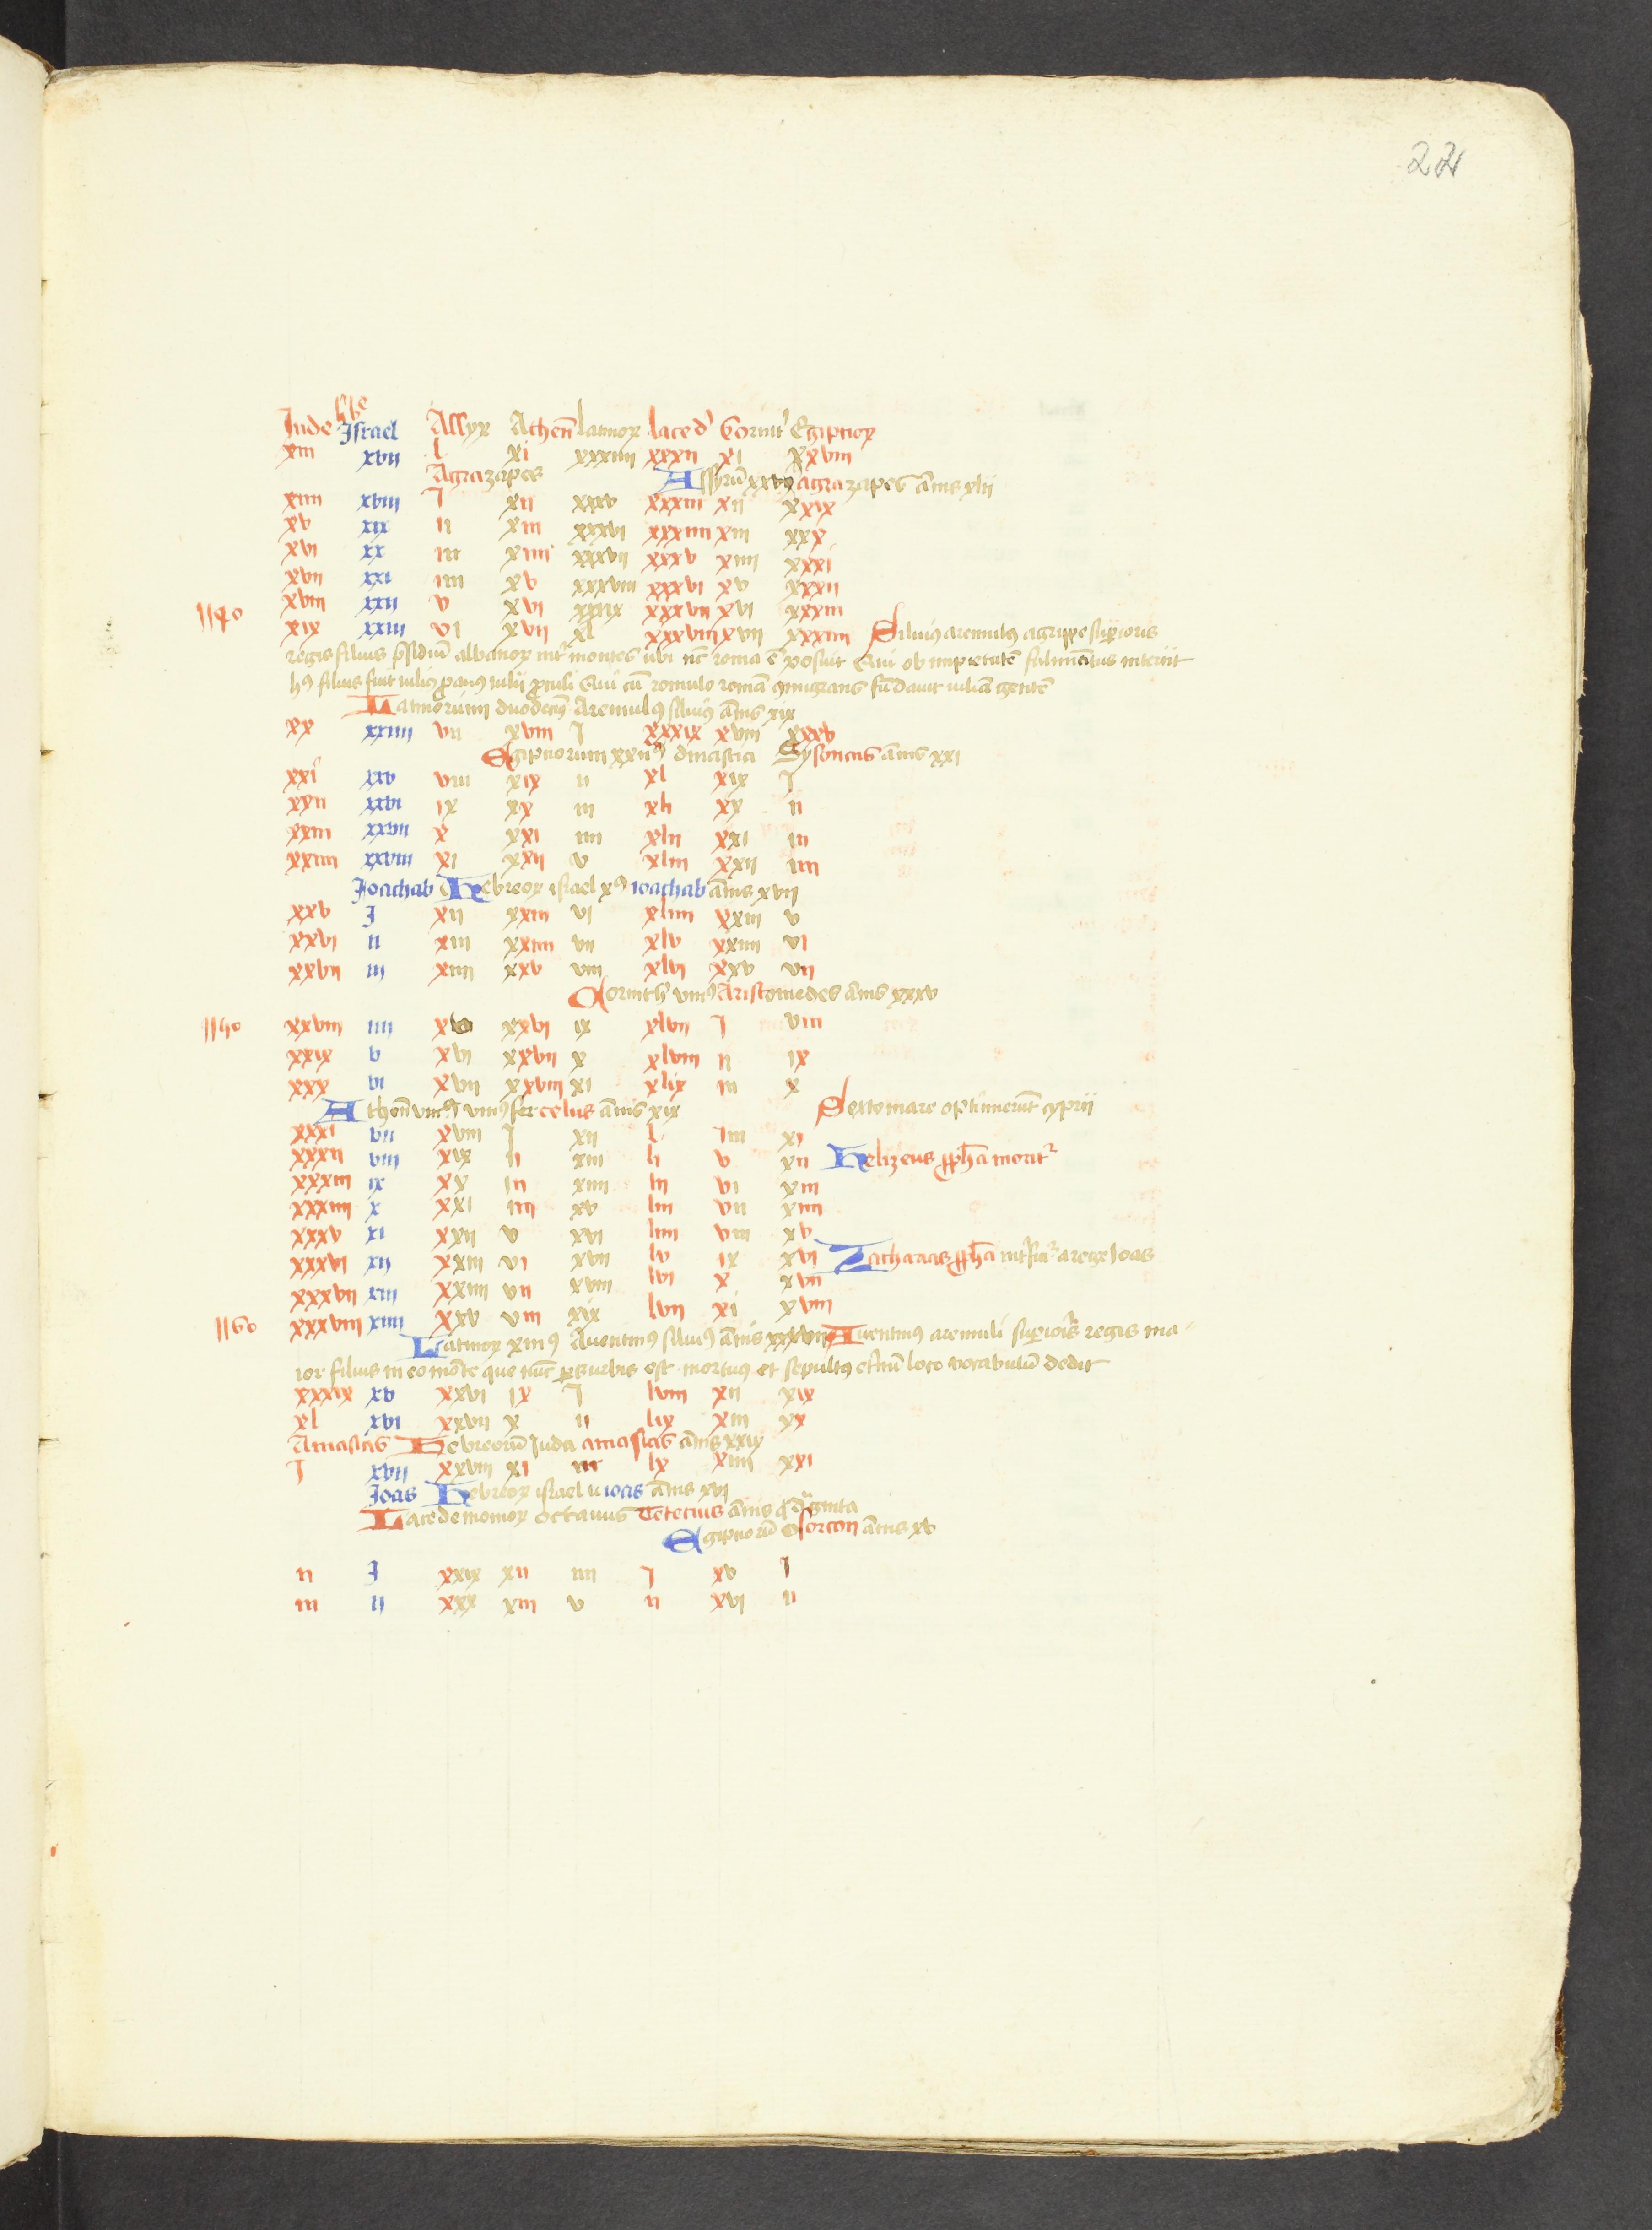 22
hbe
Jude Israel Assyꝝ Athen̄ latinoꝝ laced' Corint' Egiptioꝝ
xiii xvii l xi xxxiiii xxxii xi xxviii
Agrazapes Assyrū xxvii agrazapes ānis xlii
xiiii xviii I xii xxxv xxxiii xii xxix
xv xix ii xiii xxxvi xxxiiii xiii xxx
xvi xx iii xiiii xxxvii xxxv xiiii xxxi
xvii xxi iiii xv xxxviii xxxvi xv xxxii
1140 xviii xxii v xvi xxxix xxxvii xvi xxxiii
xix xxiii vi xvii xl xxxviii xvii xxxiiii Siluiꝰ aremulꝰ agrippe superioris
regis filius p̄sidiū albanoꝝ int' montes ubi nc̄ roma ē posuit Qui ob impietatē fulminatus interiit
hꝰ filius fuit iuliꝰ proauꝰ iulii proculi Qui cū romulo romā ↄmigrans fūdauit iuliā gentē
Latinorum duodecimꝰ Aremulꝰ siluiꝰ ānis xix
xx xxiiii vii xviii I xxxix xviii xxxv
Egiptiorum xxiiᵃ dinastia Sysoncus ānis xxi
xxi xxv viii xix ii xl xix I
xxii xxvi ix xx iii xli xx ii
xxiii xxvii x xxi iiii xlii xxi iii
xxiiii xxviii xi xxii v xliii xxii iiii
Joachab Hebreoꝝ israel xꝰ ioachab ānis xvii
xxv I xii xxiii vi xliiii xxiii v
xxvi ii xiii xxiiii vii xlv xxiiii vi
xxvii iii xiiii xxv viii xlvi xxv vii
Corinth' viiiꝰ Aristomedes ānis xxxv
1150 xxviii iiii xv xxvi ix xlvii I viii
xxix v xvi xxvii x xlviii ii ix
xxx vi xvii xxviii xi xlix iii x
Athen̄ viiiꝰ fercelus ānis xix Sexto mare optinuerūt cyprii
xxxi vii xviii I xii l iiii xi
xxxii viii xix ii xiii li v xii Helizeus ꝓpha morit'
xxxiii ix xx iii xiiii lii vi xiii
xxxiiii x xxi iiii xv liii vii xiiii
xxxv xi xxii v xvi liiii viii xv
xxxvi xii xxiii vi xvii lv ix xvi Zacharias ꝓpha int'ficit' a rege Ioas
xxxvii xiii xxiiii vii xviii lvi x xvii
1160 xxxviii xiiii xxv viii xix lvii xi xviii
Latinoꝝ xiiiꝰ Auentinꝰ siluiꝰ ānis xxxvii Auentinꝰ aremuli superioris regis ma-
ior filius in eo mōte que nūc pars urbis est mortuꝰ et sepultꝰ et'nū loco vocabulū dedit
xxxix xv xxvi ix I lviii xii xix
xl xvi xxvii x ii lix xiii xx
Amasias Hebreorū Juda amasias ānis xxix
I xvii xxviii xi iii lx xiiii xxi
Joas Hebreoꝝ israel ii ioas ānis xvi
Lacedemonioꝝ octauus Tetecius ānis q̄draginta
Egiptiorū osorcon ānis xv
ii I xxix xii iiii I xv I
iii ii xxx xiii v ii xvi ii